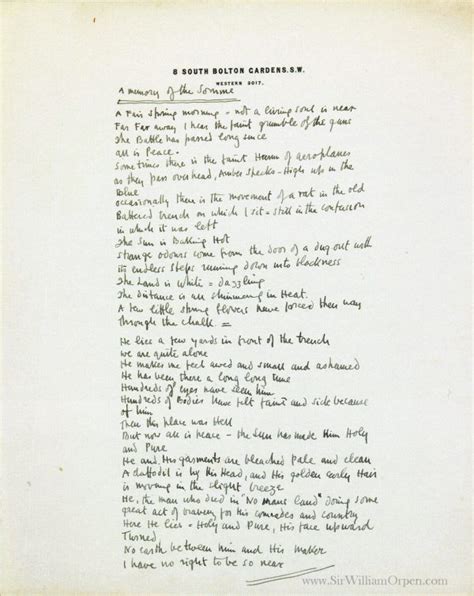 8 SOUTH BOLTON GARDENS. S.W.
WESTERN 5017.
A memory of the Somme
A Fair spring morning - not a living soul is near
Far Far away I hear the faint grumble of the guns
The Battle has passed long since
all is Peace -
sometimes there is the faint Humm of aeroplanes
as they pass overhead, Amber specks - High up in the
Blue
occasionally there is the movement of a rat in the old
Battered trench on which I sit - still in the confusion
in which it was left
The sun is Baking Hot
strange odours come from the door of a dug-out with
its endless steps running down into blackness
The Land is white - dazzling
The distance is all shimmering in Heat.
A few little spring flowers have forced their way
Through the chalk =
He lies a few yards in front of the trench
we are quite alone
He makes me feel awed and small and ashamed
He has been there a long long time
Hundreds of eyes have seen him
Hundreds of Bodies have felt faint and sick because
of him
Then this place was Hell
But now all is peace - the sun has made Him Holy
and Pure
He and His garments are bleached Pale and clean
A daffodil is by His Head, and His golden curly Hair
is moving in the slight breeze
He, the man who died in "No mans land" doing some
great act of bravery for his comrades and country
Here He lies - Holy and Pure, His face upward
Turned
No earth between him and His maker
I have no right to be so near
www.SirWilliamOrpen.com